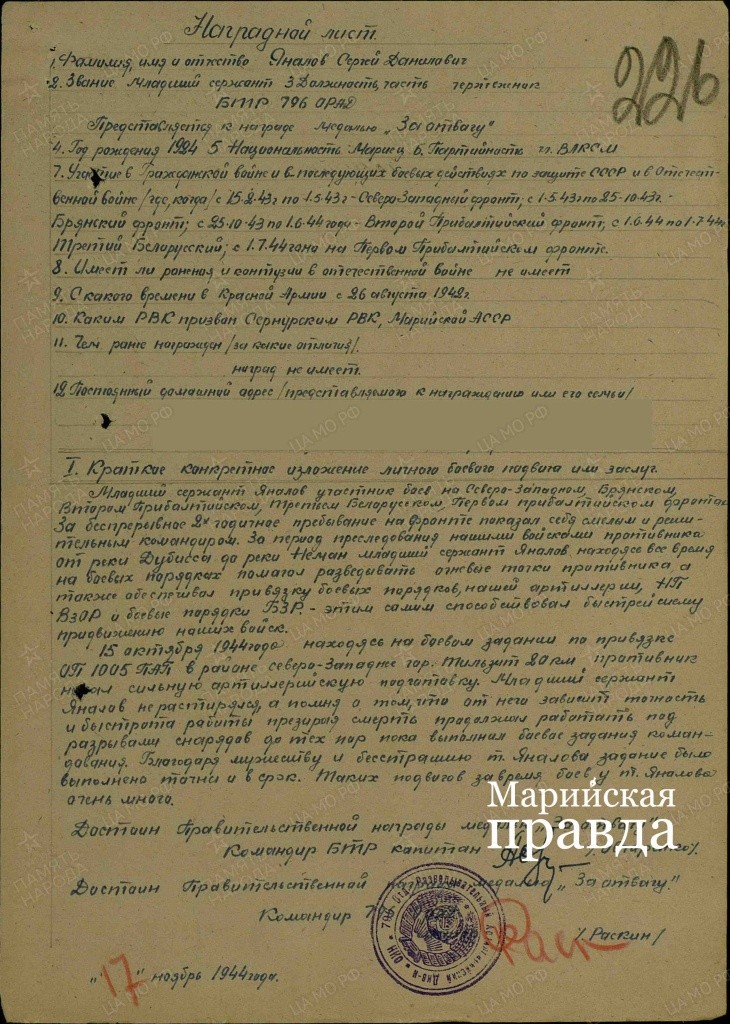 Наградной лист.
226
1. Фамилия, имя и отчество Яналов Сергей Данилович
2. Звание Младший сержант 3 Должность, часть чертежник
БТР 796 ОРАД
Представляется к награде медалью „За отвагу"
4. Год рождения 1924 5 Национальность Мариец 6. Партийность чл. ВЛКСМ
7. Участие в Гражданской войне и в последующих боевых действиях по защите СССР и в Отечест-
венной войне /где, когда/ с 15.2.43г по 1.5.43г - Северо-Западный фронт; с 1.5.43г по 25.10.43г. -
Брянский фронт; с 25.10.43 по 1.6.44 года - Второй Прибалтийский фронт; с 1.6.44 по 1.7.44г
Третий Беларусский; с 1.7.44 года на Первом Прибалтийском фронте.
8. Имеет ли ранения и контузии в отечественной войне не имеет
9. С какого времени в Красной Армии с 26 августа 1942г.
10. Каким РВК призван Сернурским РВК, Марийской АССР
11. Чем ранее награжден /за какие отличия/.
наград не имеет.
12 Постоянный домашний адрес /представляемого к награждению или его семьи/
I. Краткое конкретное изложение личного боевого подвига или заслуг.
Младший сержант Яналов участник боев на Северо-Западном, Брянском,
Втором Прибалтийском, Третьем Беларусском, Первом прибалтийском фронтах
За беспрерывное 2х годичное пребывание на фронте показал себя смелым и реши-
тельным командиром. За период преследования нашими войсками противника
от реки Дубисса до реки Неман младший сержант Яналов находясь все время
на боевых порядках помогал разведывать огневые точки противника, а
также обеспечивал привязку боевых порядков, нашей артиллерии, НП
ВЗОР и боевые порядки БЗР. - этим самим способствовал быстрейшему
продвижению наших войск.
15 октября 1944года находясь на боевом задании по привязке
ОП 1005 ПАП в районе северо-Западнее гор. Тильзит 20 км противник
начал сильную артиллерийскую подготовку. Младший сержант
Яналов не растирялся, а помня о том, что от него зависит точность
и быстрота работы презирая смерть продолжал работать под
разрывами снарядов до тех пор пока выполнил боевое задания коман-
дования. Благодаря мужеству и бесстрашию т. Яналова задание было
выполнено точно и в срок. Таких подвигов за время боев у т. Яналова
очень много.
Марийская
правда
Достоин Правительственной награды медали „За отвагу"
Командир БТР капитан
Достоин Правительственной медалью „За отвагу."
Командир /Раскин/
Раск
„17" ноябрь 1944года.